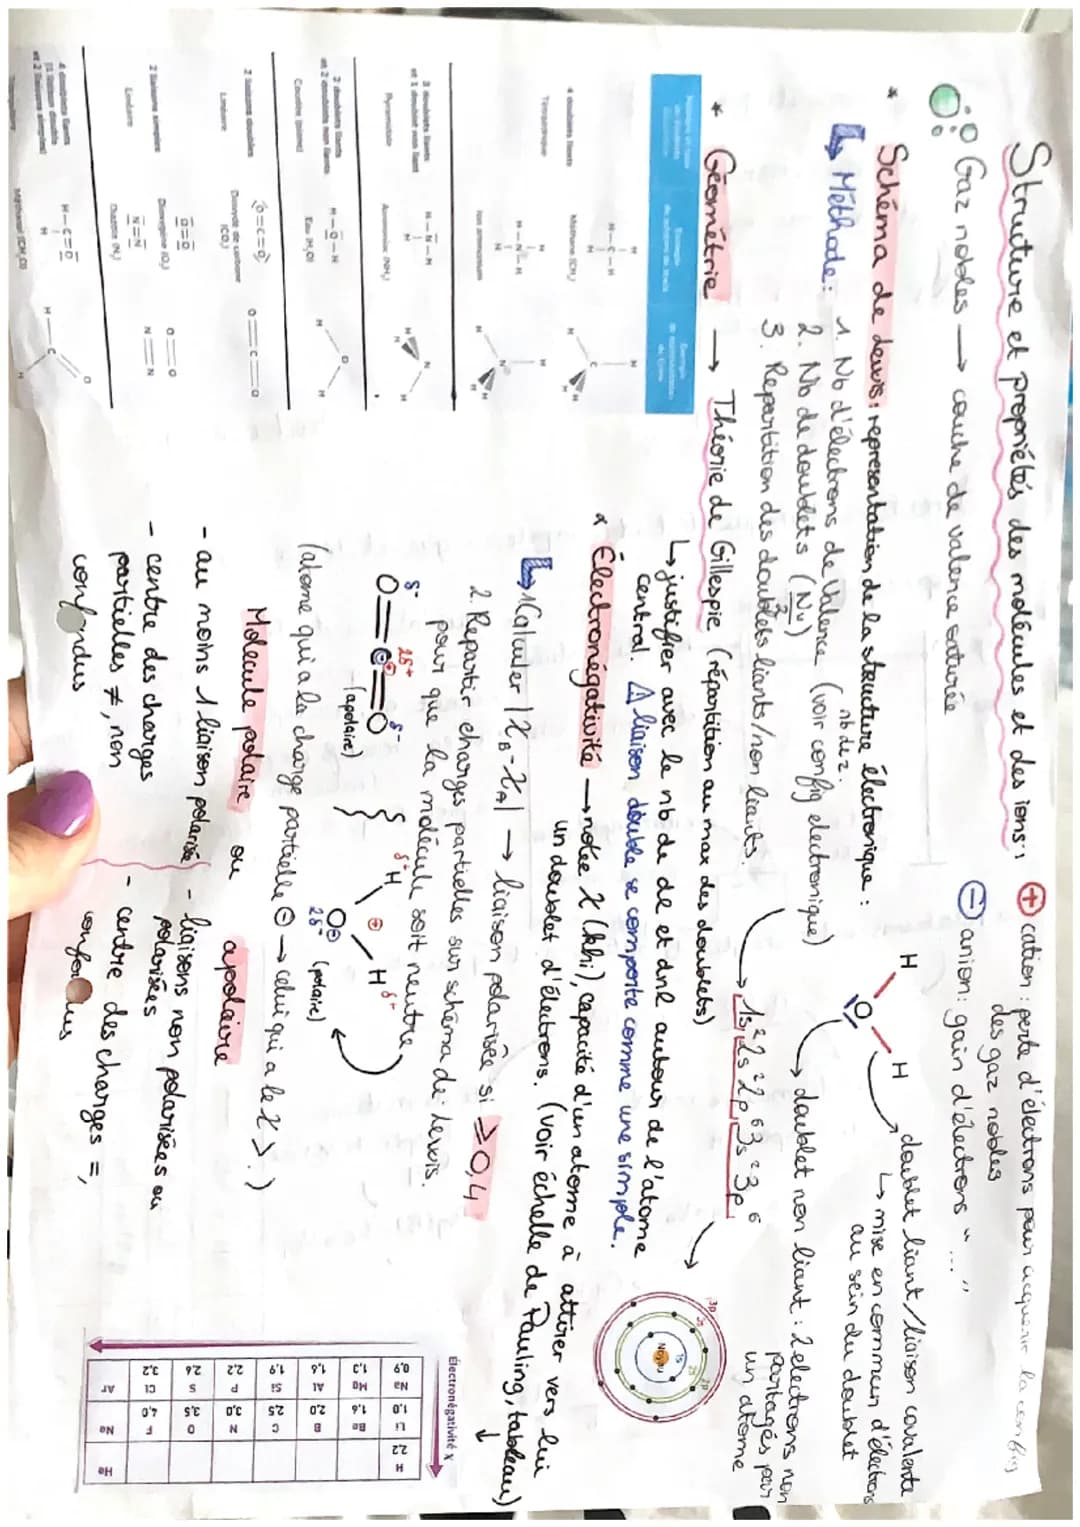 Structure et propriétés des molécules et des ions :
⊕ cation : perte d'électrons pour acquérir la config
des gaz nobles
⊖ anion : gain d'électrons " " ...
Gaz nobles → couche de valence saturée
* Schéma de lewis : representation de la structure électronique :
↳ Méthode : 1. Nb d'électrons de Valence (voir config electronique)
2. Nb de doublets (Nv/2) nb de z.
3. Repartition des doublets liants/non liants.
H O H
doublet liant/liaison covalente
↳ mise en commun d'électrons
au sein du doublet
doublet non liant : 2 electrons non
partagés par
un atome
1s² 2s² 2p⁶ 3s² 3p⁶
* Géométrie → Théorie de Gillespie (répartition au max des doublets)
↳ justifier avec le nb de dl et dnl autour de l'atome
central. ⚠ liaison double se comporte comme une simple.
3p
3s
2p
2s
1s
Noyau
Exemple
de schéma de Lewis
Exemple
de représentation
de Cram
4 doublets liants
Tétraédrique
Méthane (CH₄)
Ion ammonium
3 doublets liants
et 1 doublet non liant
Pyramidale
Ammoniac (NH₃)
2 doublets liants
et 2 doublets non liants
Coudée (plane)
Eau (H₂O)
2 liaisons doubles
Linéaire
Dioxyde de carbone
(CO₂)
2 liaisons simples
Linéaire
Dioxygène (O₂)
Diazote (N₂)
4 doublets liants
(1 liaison double
et 2 liaisons simples)
Méthanal (CH₂O)
* Électronégativité → notée χ (khi), capacité d'un atome à attirer vers lui
un doublet d'électrons. (voir échelle de Pauling, tableau)
↳ 1 Calculer |χB - χA| → liaison polarisée si ≥ 0,4
2. Repartir charges partielles sur schéma de Lewis
pour que la molécule soit neutre.
δ- 2δ+ δ-
O = C = O
(apolaire)
δ+ H O H δ+
2δ- (polaire)
(atome qui a la charge partielle ⊖ → celui qui a le χ >.)
Molécule polaire ou apolaire
- au moins 1 liaison polarisée
- centre des charges
partielles ≠, non
confondus
- liaisons non polarisées ou
polarisées
- centre des charges =,
confondus
Électronégativité χ
H 2.2 He
Li 1.0 Be 1.6 B 2.0 C 2.5 N 3.0 O 3.5 F 4.0 Ne
Na 0.9 Mg 1.3 Al 1.6 Si 1.9 P 2.2 S 2.6 Cl 3.2 Ar